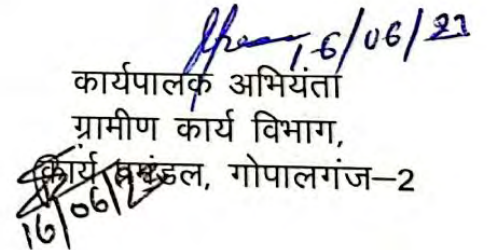 16/06/23
कार्यपालक अभियंता
ग्रामीण कार्य विभाग,
कार्य प्रमंडल, गोपालगंज–2
16/06/23